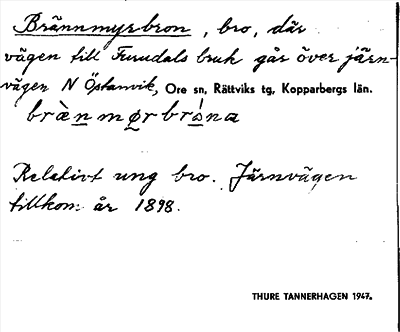 Brännmyrbron, bro, där
vägen till Furudals bruk går över järn-
vägen N Östanvik, Ore sn, Rättviks tg, Kopparbergs län.
brὲn mørbrǫ́na
Relativt ung bro. Järnvägen
tillkom år 1898.
THURE TANNERHAGEN 1947.